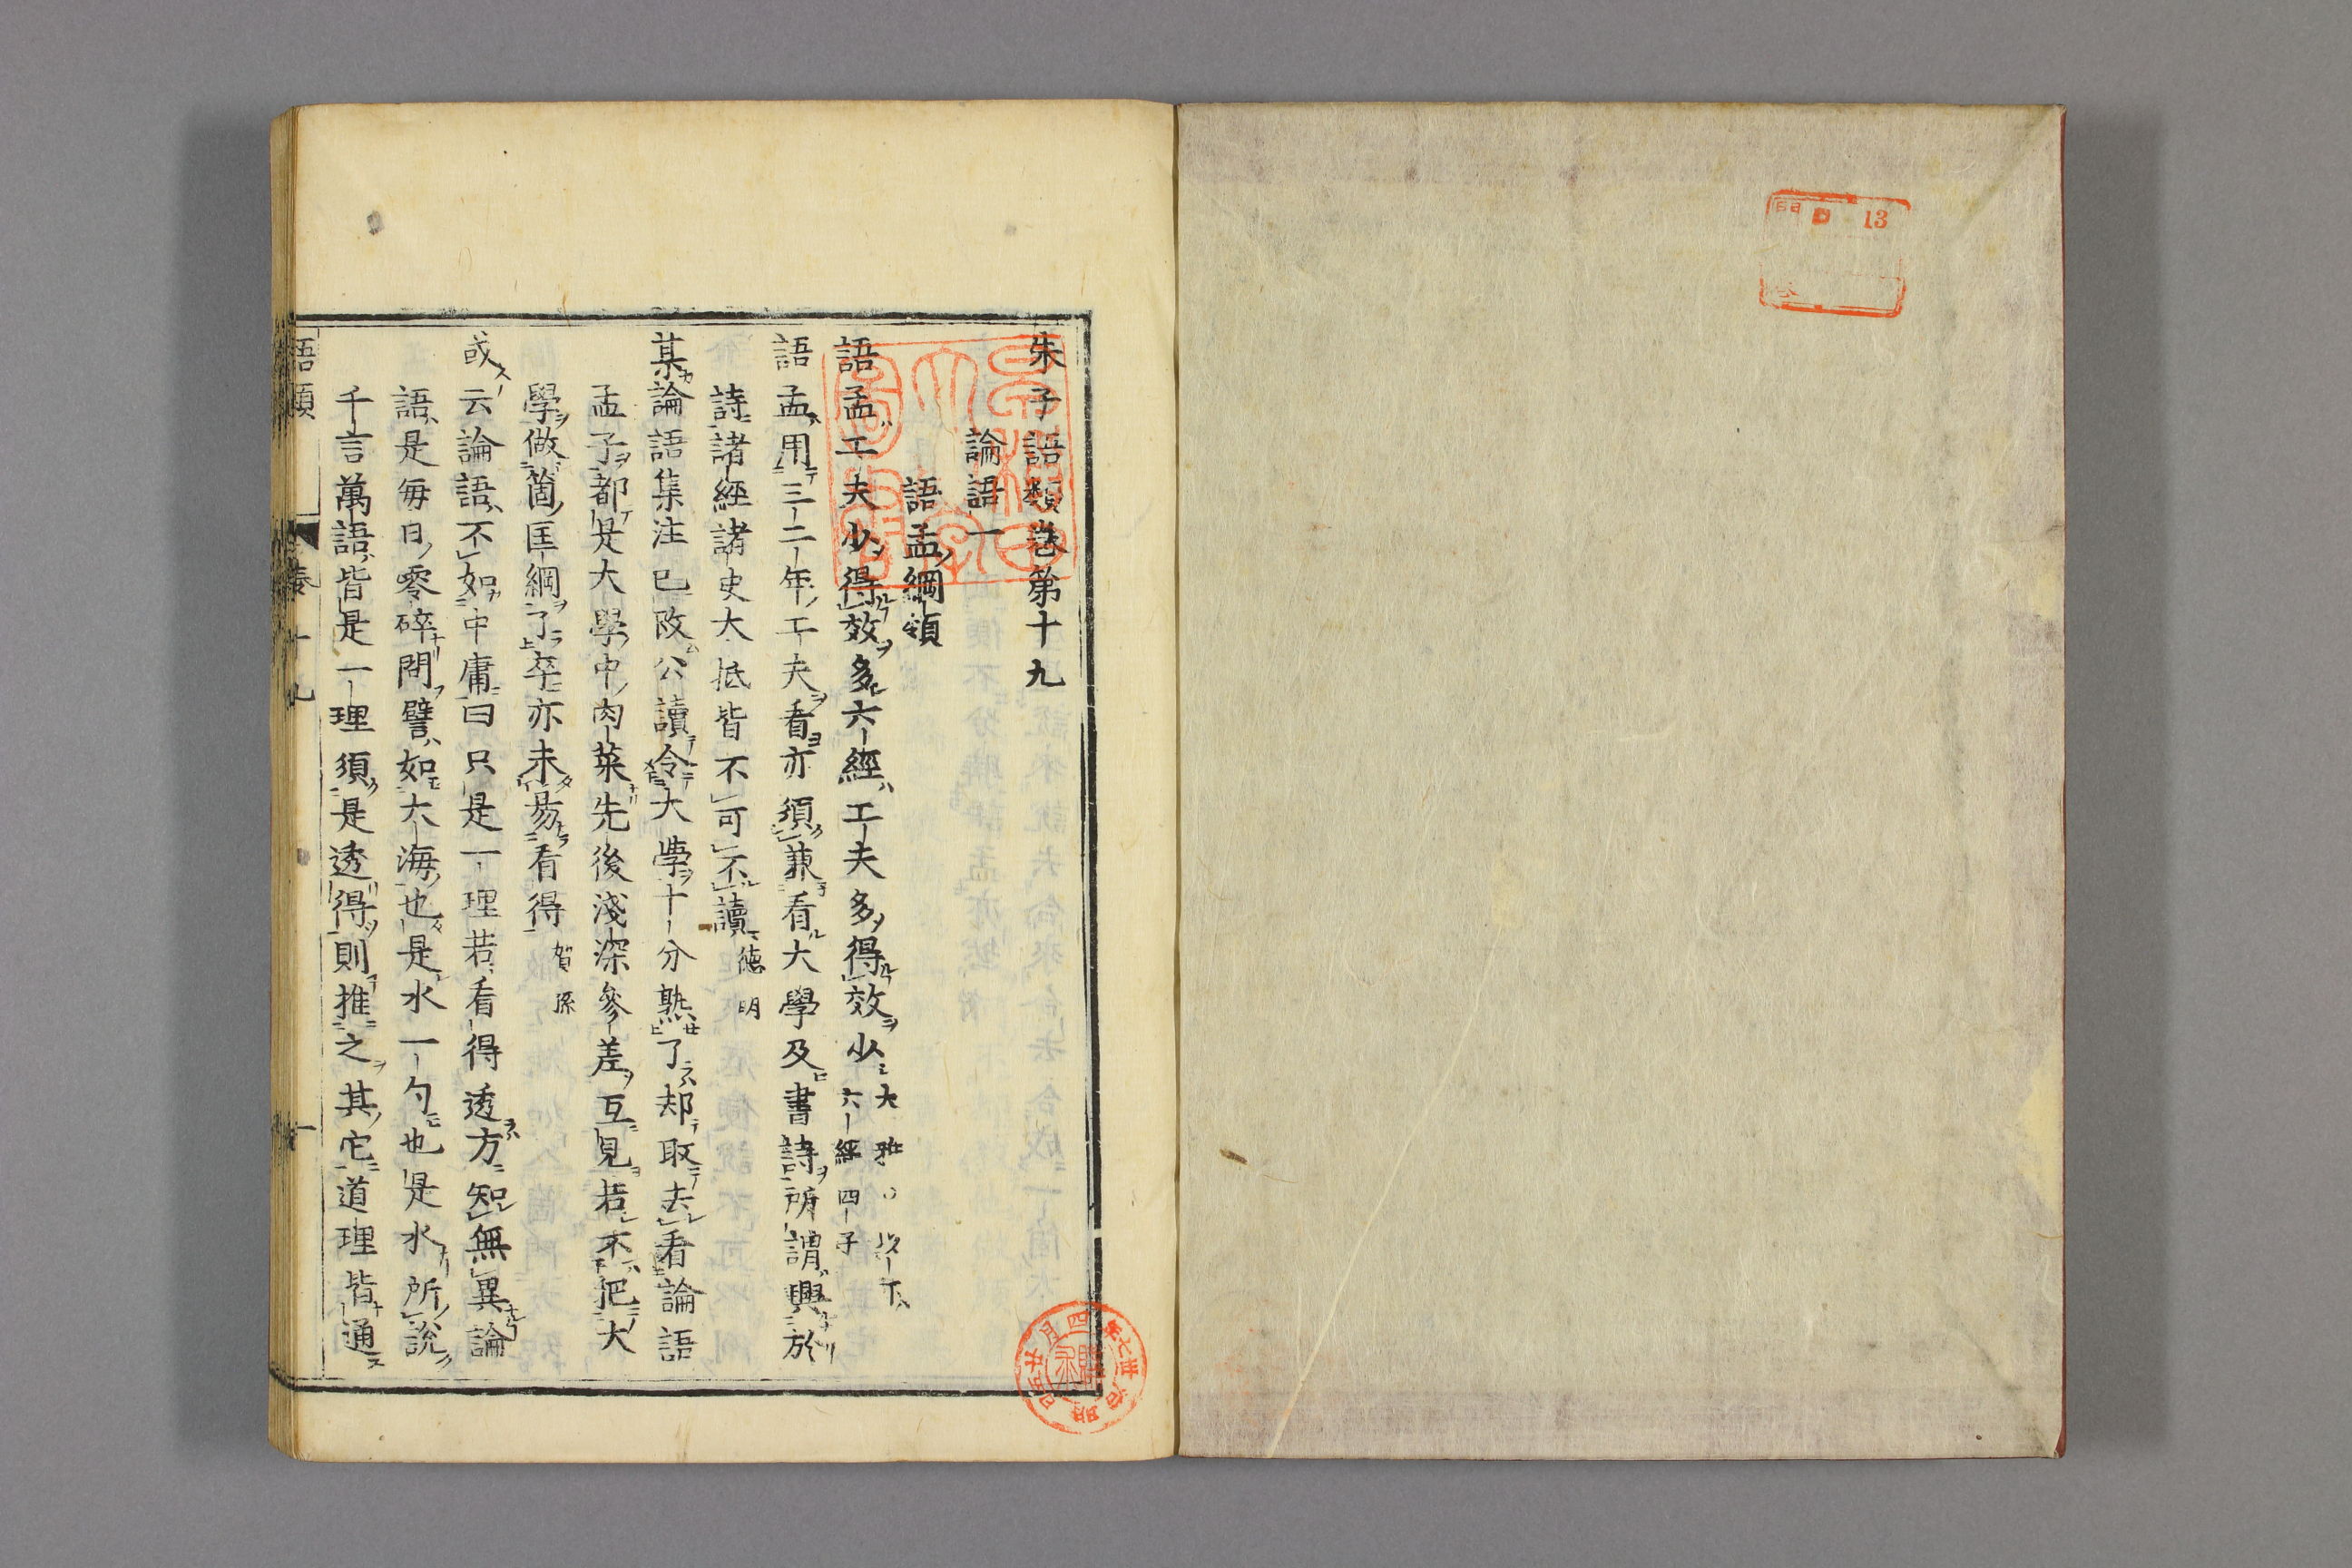 朱子語類卷第十九
論語一
語孟綱領
語孟工夫少得效多六經工夫多得效少大雅○以下六經四子
語孟用三二年工夫看亦須兼看大學及書詩所謂興於
詩諸經諸史大抵皆不可不讀德明
某論語集注已改公讀令大學十分熟了却取去看論語
孟子都是大學中肉菜先後淺深參差互見若不把大
學做箇匡綱了卒亦未易看得賀孫
或云論語不如中庸曰只是一理若看得透方知無異論
語是每日零碎問譬如大海也是水一勺也是水所說
千言萬語皆是一理須是透得則推之其它道理皆通
語類 卷十九 一
13